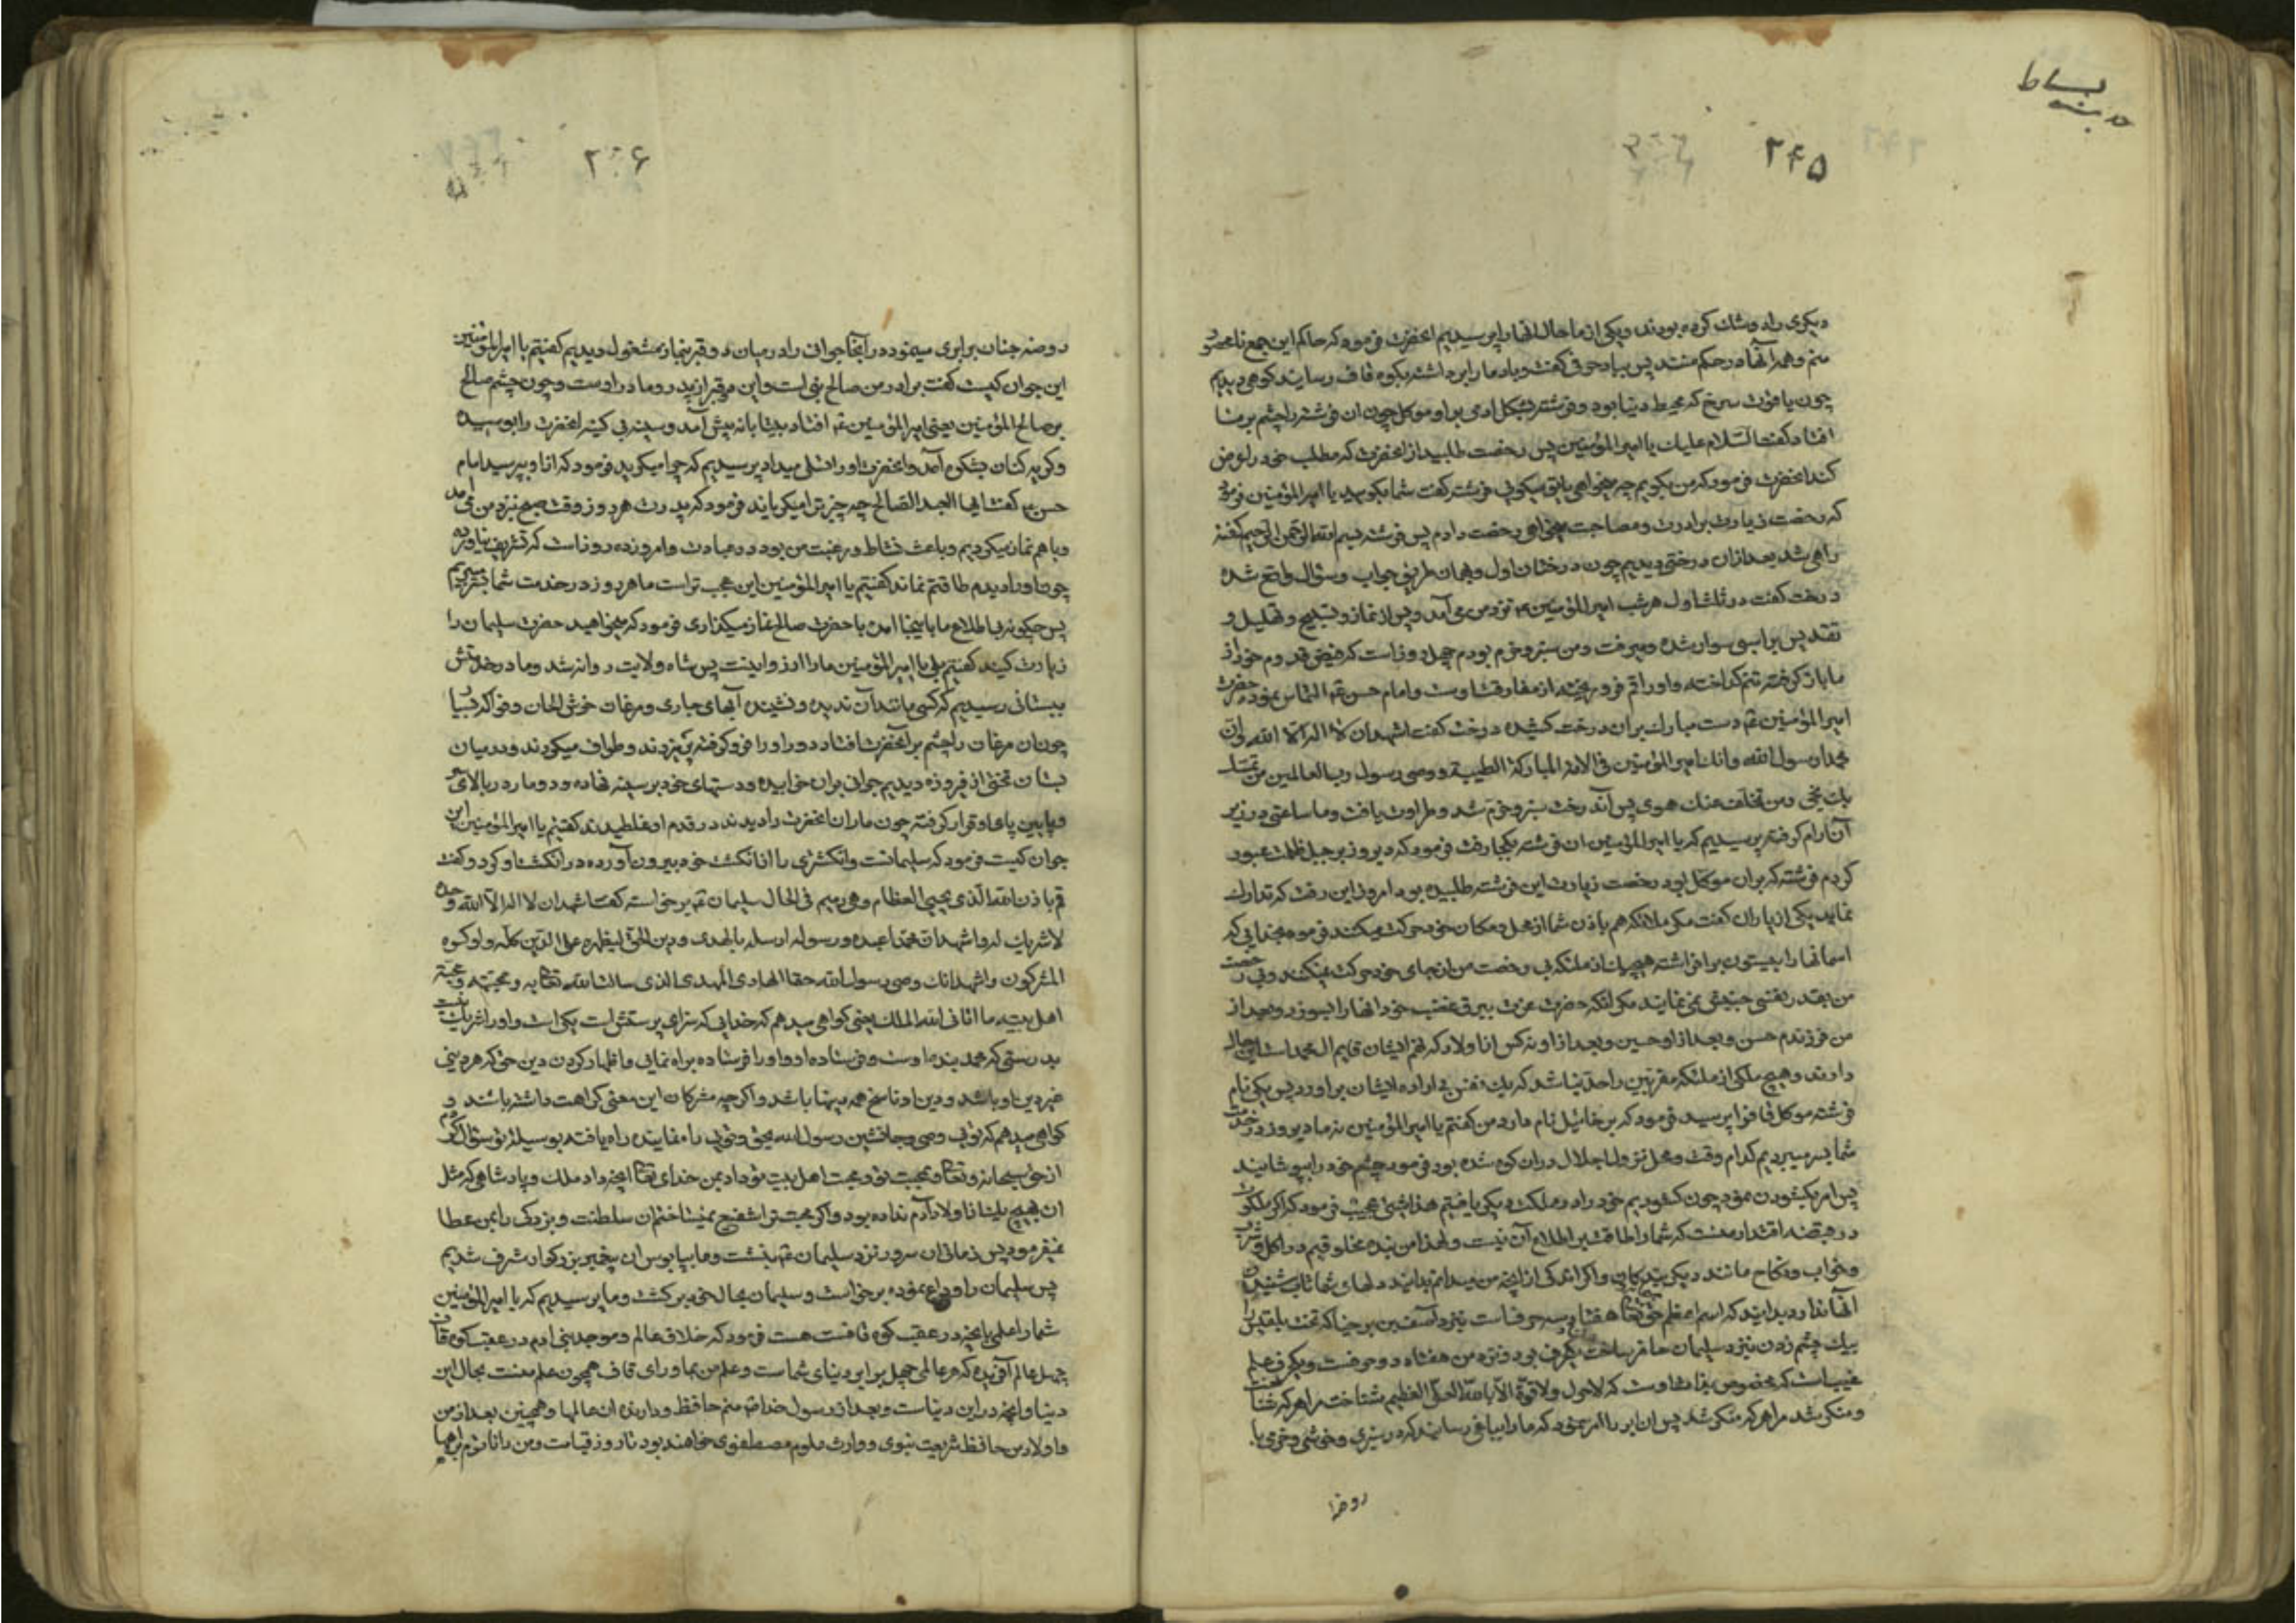 بساط
۲۴۵
دیکری را دو شك کرده بودند و یکی از ما حال انها را پرسیدیم انحضرت فرمود که حاکم این جمع نامحصور
منم و همه آنها در حکم منند پس بباد حرفی کفت و باد ما را برداشته بکوه قاف رسانید کوهی دیدیم
چون یاقوت سرخ که محیط دنیا بود و فرشته بشکل ادمی بر او موکل چون ان فرشته را چشم بر ما
افتاد کفت السلام علیك یا امیر المؤمنین پس رخصت طلبید از انحضرت که مطلب خود را عرض
کند انحضرت فرمود که من بکویم چه میخواهی یا تو میکوئی فرشته کفت شما بکویید یا امیر المؤمنین فرمود
که رخصت زیارت برادرت و مصاحبت میخواهی رخصت دادم پس فرشته بسم الله الرحمن الرحیم کفته
راهی شد بعد ازان درختی دیدیم چون درختان اول و بهمان طریق جواب و سؤال واقع شده
درخت کفت در ثلث اول هر شب امیر المؤمنین ع نزد من می آمد و پس از نماز و تسبیح و تهلیل و
تقدیس بر اسبی سوار شده میرفت و من سبز و خرم بودم چهل روز است که فیض قدوم خود از
ما باز کرفته تنم کداخته و اوراقم فرو ریخته از مفارقت اوست و امام حسن ع التماس نمود حضرت
امیر المؤمنین ع دست مبارك بران درخت کشیده درخت کفت اشهد ان لا اله الا الله و ان
محمدا رسول الله و انك امیر المؤمنین فی الامة المبارکة الطیبة و وصی رسول رب العالمین من تمسك
بك نجی و من تخلف عنك هوی پس آن درخت سبز و خرم شد و طراوت یافت و ما ساعتی در زیر
آن ارام کرفته پرسیدیم که یا امیر المؤمنین ان فرشته بکجا رفت فرمود که دیروز بر جبل ظلمت عبور
کردم فرشته که بران موکل بود رخصت زیارت این فرشته طلبیده بود امروز این رفت که تدارك
نماید یکی از یاران کفت مکر ملائکه هم باذن شما از محل و مکان خود حرکت میکنند فرمود بخدایی که
اسمانها را بی ستون بر افراشته هیچیك از ملئکه بی رخصت من از جای خود حرکت نمیکنند و بی رخصت
من بقدر نفسی جنبش نمی نمایند مکر انکه حضرت عزت ببرق غضب خود انها را بسوزد و بعد از
من فرزندم حسن و بعد از او حسین و بعد از او نه کس از اولاد که نهم ایشان قایم ال محمد است این حال
دارند و هیچ ملکی از ملئکه مقربین را حد نباشد که یك نفس بی اراده ایشان براورد پس یکی نام
فرشته موکل قاف را پرسید فرمود که برخائیل نام دارد من کفتم یا امیر المؤمنین نه ما دیروز در خدمت
شما بسر میبردیم کدام وقت و محل نزول اجلال دران کوه شده بود فرمود چشم خود را بپوشانید
پس امر بکشودن نمود چون کشودیم خود را در مملکت دیکی یافتیم هذا لشئ عجیب فرمود که اکر ملکوت
در قبضه اقتدار منست که شما را طاقت بر اطلاع آن نیست و لهذا من بنده مخلوقیم در اکل و شرب
و خواب و نکاح مانند دیکر بندکان و اکر اندکی از انچه من میدانم بدانید دلهای شما تاب شنیدن
آنها ندارد بدانید که اسم اعظم حق تعالی هفتاد و سه حرفست نزد آصف بن برخیا که تخت بلقیس را
بیك چشم زدن نزد سلیمان حاضر ساخت یکحرف بود و نزد من هفتاد و دو حرفست و یکحرف علم
غیب است که مخصوص بذات اوست که لاحول و لا قوة الا بالله العلی العظیم شناخت مرا هر که شناخت
و منکر شد مرا هر که منکر شد پس ان ابر را امر نمود که ما را بباغی رسانید که در سبزی و خوشی و خرمی با
روضهٔ
۲۴۶
روضه جنان برابری مینمود در آنجا جوانی را در میان دو قبر بنماز مشغول دیدیم کفتیم یا امیر المؤمنین
این جوان کیست کفت برادر من صالح نبی است و این دو قبر از پدر و مادر اوست و چون چشم صالح
بر صالح المؤمنین یعنی امیر المؤمنین ع افتاد بیتابانه پیش آمد و سینه بی کینه انحضرت را بوسیده
و کریه کنان بشکوه آمد و انحضرت او را تسلی میداد پرسیدیم که چرا میکرید فرمود که از او بپرسید امام
حسن ع کفت ایها العبد الصالح چه چیز ترا میکریاند فرمود که پدرت هر روز وقت صبح نزد من می آمد
و با هم نماز میکردیم و باعث نشاط و رغبت من بود در عبادت و امروز ده روز است که تشریف نیاورده
چون او را دیدم طاقتم نماند کفتیم یا امیر المؤمنین این عجب تر است ما هر روز در خدمت شما بسر میبریم
پس چکونه بی اطلاع ما باینجا امده با حضرت صالح نماز میکذاری فرمود که میخواهید حضرت سلیمان را
زیارت کنید کفتیم بلی یا امیر المؤمنین ما را ارزو اینست پس شاه ولایت روانه شد و ما در خدمتش
ببستانی رسیدیم که کسی مانند آن ندیده و نشنیده آبهای جاری و مرغان خوش الحان و فواکه بسیار
چون ان مرغان را چشم بر انحضرت افتاد دور او را فرو کرفته پر میزدند و طواف میکردند و در میان
بستان تختی از فیروزه دیدیم جوانی بران خوابیده و دستهای خود بر سینه نهاده و دو مار در بالای سر
و پایین پای او قرار کرفته چون ماران انحضرت را دیدند در قدم او غلطیدند کفتیم یا امیر المؤمنین این
جوان کیست فرمود که سلیمانست و انکشتری را از انکشت خود بیرون آورده در انکشت او کرد و کفت
قم باذن الله الذی یحیی العظام و هی رمیم فی الحال سلیمان ع برخواسته کفت اشهد ان لا اله الا الله وحده
لا شریك له و اشهد ان محمدا عبده و رسوله ارسله بالهدی و دین الحق لیظهره علی الدین کله و لو کره
المشرکون و اشهد انك وصی رسول الله حقا الهادی المهدی الذی سالت الله تعالی به و بمحبته و محبة
اهل بیته ما اتانی الله الملك یعنی کواهی میدهم که خدایی که سزای پرستش است یکی است و او را شریك نیست
بدرستی که محمد بنده اوست و فرستاده او و او را فرستاده براه نمایی و اظهار کردن دین حق که هر دینی
غیر دین او باشد و دین او ناسخ همه دینها باشد و اکرچه مشرکان این معنی کراهت داشته باشند و
کواهی میدهم که توئی وصی و جانشین رسول الله بحق و توئی راه نماینده راه یافته بوسیله تو سؤال کردم
از حق سبحانه و تعالی و بمحبت تو و محبت اهل بیت تو داد بمن خدای تعالی انچه داد ملك و پادشاهی که مثل
ان بهیچ یك از اولاد آدم نداده بود و اکر محبت ترا شفیع نمیساختم ان سلطنت و بزرکی را بمن عطا
نمیفرمود پس زمانی ان سرور نزد سلیمان ع نشست و ما بپابوس ان پیغمبر بزرکوار مشرف شدیم
پس سلیمان را وداع نموده برخواست و سلیمان بحال خود برکشت و ما پرسیدیم که یا امیر المؤمنین
شما را علمی بانچه در عقب کوه قافست هست فرمود که خلاق عالم و موجد بنی ادم در عقب کوه قاف
چهل عالم آفریده که هر عالمی چهل برابر دنیای شماست و علم من بماورای قاف همچون علم منست بحال این
دنیا و انچه در این دنیاست و بعد از رسول خدا ص منم حافظ و دارنده ان عالمها و همچنین بعد از من
و اولاد من حافظ شریعت نبوی و وارث علوم مصطفوی خواهند بود تا روز قیامت و من داناترم براهها